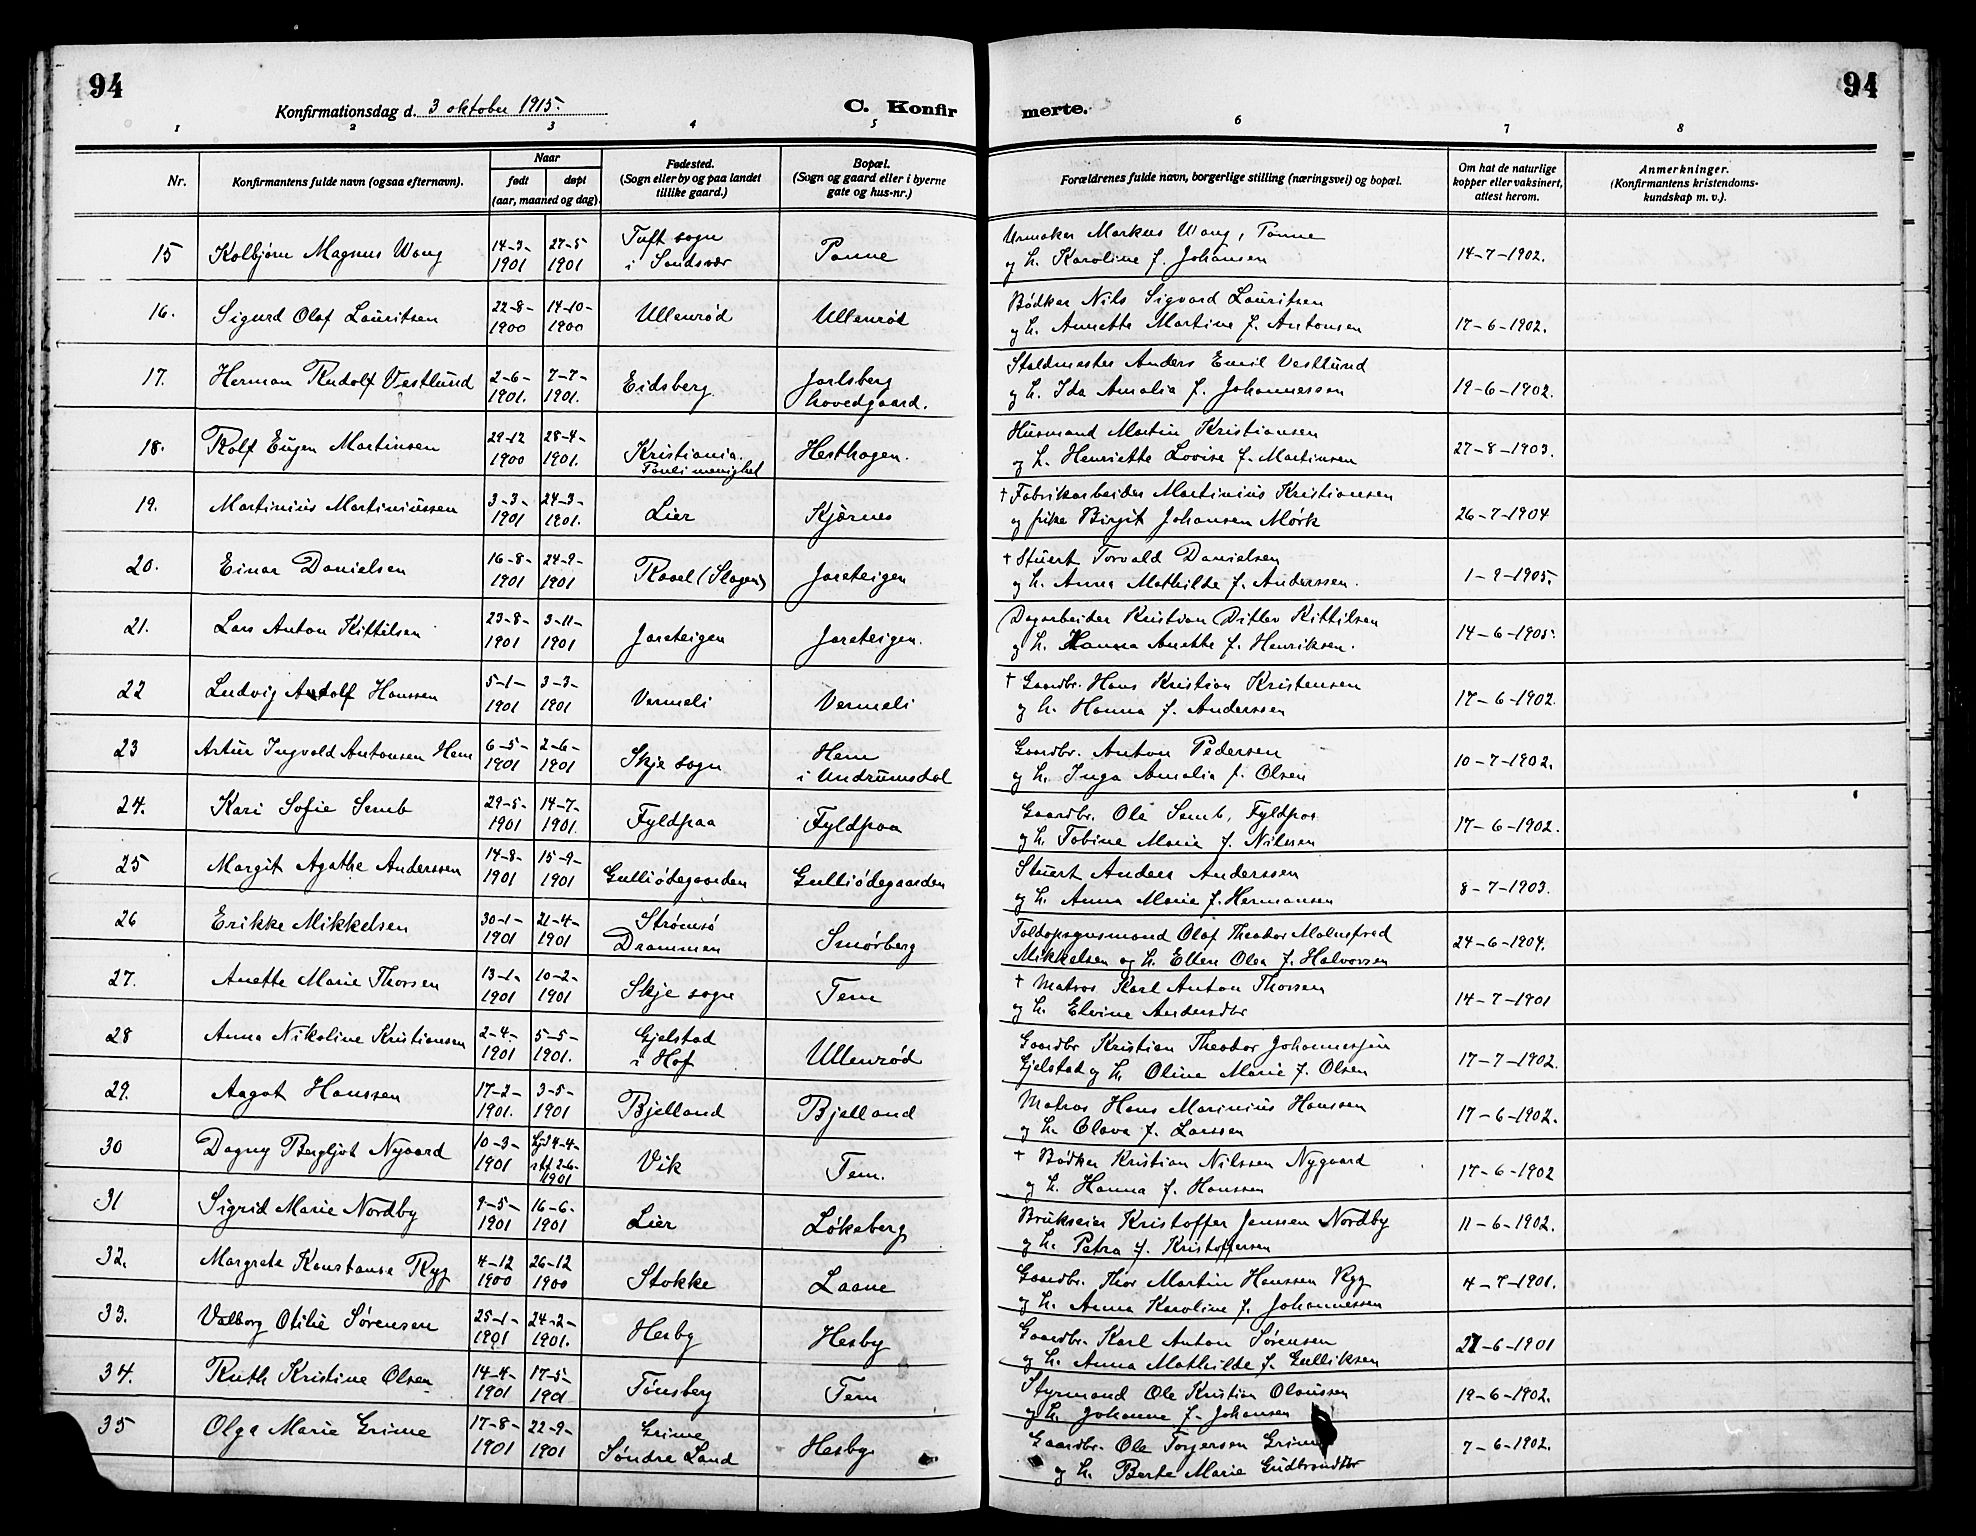 94
Konfirmationsdag d. 3 oktober 1915.
C. Konfir
merte.
94
1 2 3 4 5 6 7 8
Nr.
Konfirmantens fulde navn (ogsaa efternavn).
Naar
født døpt
(aar, maaned og dag).
Fødested.
(Sogn eller by og paa landet
tillike gaard.)
Bopæl.
(Sogn og gaard eller i byerne
gate og hus-nr.)
Forældrenes fulde navn, borgerlige stilling (næringsvei) og bopæl.
Om hat de naturlige
kopper eller vaksinert,
attest herom.
Anmerkninger.
(Konfirmantens kristendoms-
kundskap m. v.).
15 Kolbjørn Magnus Wang 14-3- 27-5 Tuft sogn Urmaker Markus Wang, Tanne
1901 1901 i Sandsvær Tanne og h. Karoline f. Johansen 14-7-1902.
16. Sigurd Olaf Lauritsen 22-8- 14-10- Ullenrød Ullenrød Bødker Nils Sigvard Lauritsen
1900 1900 og h. Annette Martine f. Antonsen 17-6-1902.
17. Herman Rudolf Vestlund 2-6- 7-7- Eidsberg Jarlsberg Staldmester Anders Emil Vestlund
1901. 1901. hovedgaard. og h. Ida Amalia f. Johannessen 19-6-1902.
18. Rolf Eugen Martinsen 29-12 28-4- Kristiania. Hesthagen. Husmand Martin Kristiansen
1900 1901. Pauli menighet og h. Henriette Lovise f. Martinsen 27-8-1903.
19. Martinius Martiniussen 3-3- 24-3- Lier Skjærnes † Fabrikarbeider Martinius Kristiansen
1901 1901. og frike Birgit Johansen Mørk 26-7-1904
20. Einar Danielsen 16-8- 24-9- Raael (Slagen) Jareteigen † Stuert Torvald Danielsen
1901 1901 og h. Anna Mathilde f. Anderssen. 1-9-1905.
21. Lars Anton Kittilsen 23-8- 3-11- Jareteigen Jareteigen. Dagarbeider Kristian Ditlev Kittilsen
1901 1901 og h. Hanna Anette f. Henriksen. 14-6-1905.
22 Ludvig Andolf Hanssen 5-1- 3-3- Vermeli Vermeli † Gaardbr. Hans Kristian Kristensen
1901 1901 og h. Hanna f. Anderssen 17-6-1902.
23 Artur Ingvald Antonsen Hem 6-5- 2-6- Skje sogn Hem Gaardbr. Anton Pedersen
1901 1901 i Undrumsdal og h. Inga Amalia f. Olsen 10-7-1902.
24. Kari Sofie Semb 29-5- 14-7- Fyldpaa Fyldpaa Gaardbr. Ole Semb, Fyldpaa
1901 1901. og h. Tobine Marie f. Nilssen 17-6-1902.
25 Margit Agathe Anderssen 14-8- 15-9- Gulliødegaarden Gulliødegaarden Stuert Anders Anderssen
1901 1901 og h. Anna Marie f. Hermansen 8-7-1903.
26 Erikke Mikkelsen 30-1- 21-4- Strømsø Smørberg Toldopsynsmand Olaf Theodor Malmfred
1901 1901 Drammen Mikkelsen og h. Ellen Olea f. Halvorsen 24-6-1904.
27. Anette Marie Thorsen 13-1- 10-2- Skje sogn Tem † Matros Karl Anton Thorsen
1901 1901 og h. Elvine Andersdtr 14-7-1901
28 Anna Nikoline Kristiansen 2-4- 5-5- Gjelstad Ullenrød Gaardbr Kristian Theodor Johannessen
1901 1901. i Hof Gjelstad og h. Oline Marie f. Olsen 17-7-1902.
29. Aagot Hanssen 17-2- 3-5- Bjelland Bjelland Matros Hans Marinius Hanssen
1901. 1901 og h. Olava f. Larssen 17-6-1902.
30 Dagny Bergljot Nygaard 10-3- hjd 4-4- Vik Tem. † Bødker Kristian Nilssen Nygaard
1901 stf 2-6- 1901 og h. Hanna f. Hanssen 17-6-1902
31 Sigrid Marie Nordby 9-5- 16-6- Lier Løkeberg Brukseier Kristoffer Jenssen Nordby 11-6-1902.
1901 1901 og h. Petra f. Kristoffersen
32. Margrete Konstanse Ryg 4-12 26-12 Stokke Laane Gaardbr. Thor Martin Hanssen Ryg
1900 1900 og h. Anna Karoline f. Johannessen 4-7-1901.
33. Valborg Otilie Sørensen 25-1- 24-2- Hesby Hesby Gaardbr. Karl Anton Sørensen
1901 1901. og h. Anna Mathilde f. Gulliksen 21-6-1901
34. Ruth Kristine Olsen 14-4- 17-5- Tønsberg Tem Styrmand Ole Kristian Olaussen 19-6-1902.
1901 1901 og h. Johanne f. Johansen
35 Olga Marie Grime 17-8- 22-9- Grime Hesby Gaardbr. Ole Torgersen Grime 7-6-1902.
1901 1901 Søndre Land og h. Berte Marie Gudbrandsdtr